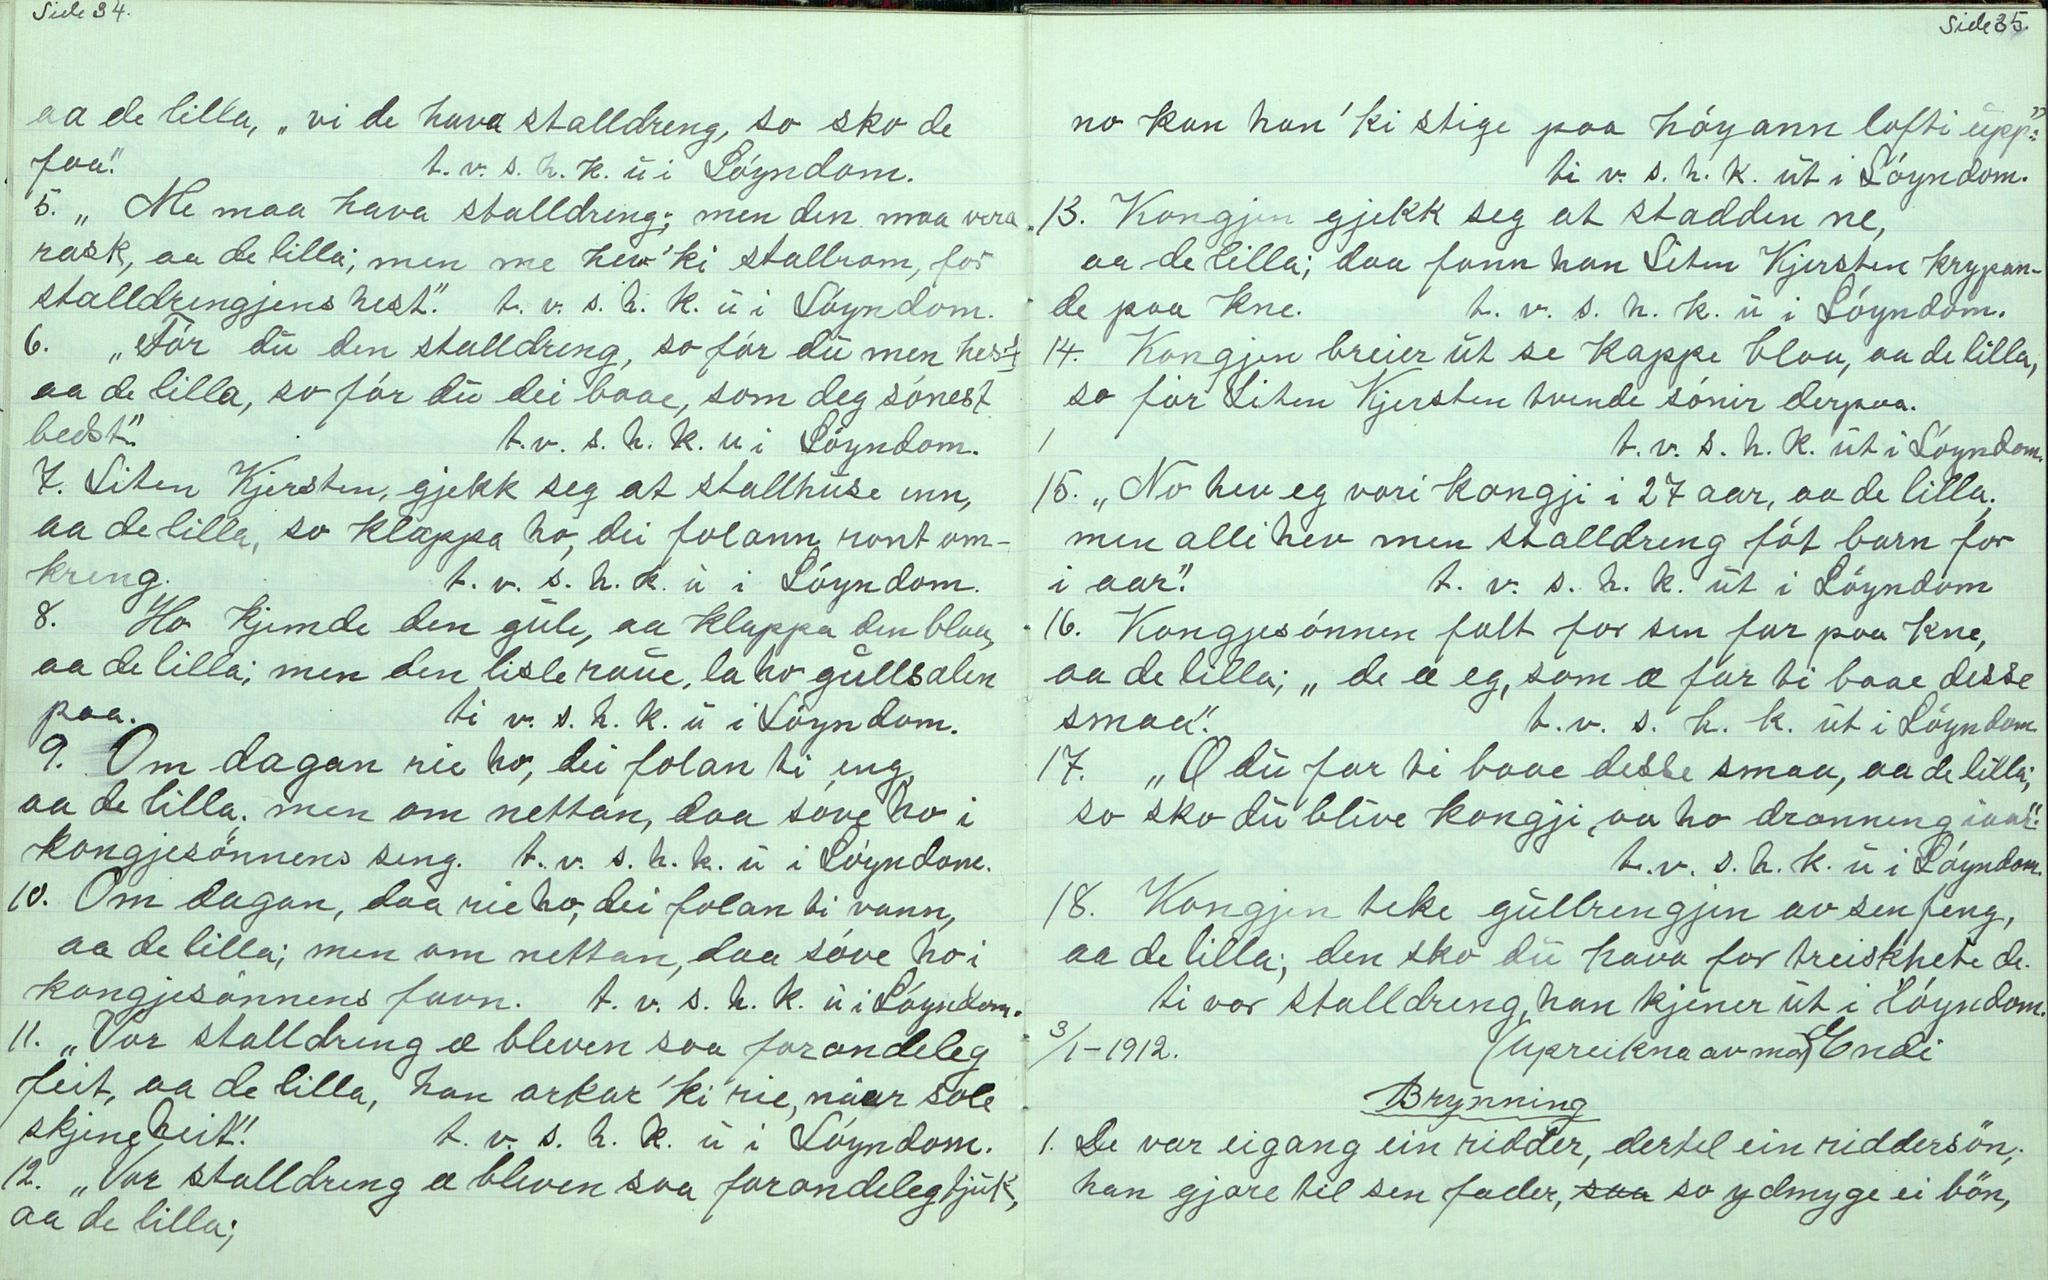 Side 34.
aa de lilla, „vi de hava stalldreng, so sko de
faa". t. v. s. h. k. ü i Löyndom.
5. „Me maa hava stalldreng; men den maa vera
rask, aa de lilla; men me hev'ki stallrom, for
stalldrengjens hest". t. v. s. h. k. ü i Löyndom.
6. „Får dü den stalldreng, so får dü men hest
aa de lilla, so får dü dei baae, som deg sönest
bedst". t. v. s. h. k. u i Löyndom.
7. Liten Kjersten, gjekk seg at stallhüse inn,
aa de lilla, so klappa ho, dei folann ront om-
kreng. t. v. s. h. k. ü i Löyndom.
8. Ho kjemde den güle, aa klappa den blaa,
aa de lilla; men den lisle raüe, la ho güllsalen
paa. ti v. s. h. k. ü i Löyndom.
9. Om dagan rie ho, dei folan ti eng,
aa de lilla. men om nettan, daa söve ho i
kongjesönnens seng. t. v. s. h. k. ü i Löyndom.
10. Om dagan, daa rie ho, dei folan ti vann,
aa de lilla; men om nettan, daa söve ho i
kongjesönnens favn. t. v. s. h. k. ü i Löyndom.
11. „Vor stalldreng æ bleven saa forandeleg
feit, aa de lilla, han orkar'ki rie, naar sole
skjine heit"! t. v. s. h. k. ü i Löyndom.
12. „Vor stalldreng æ bleven saa forandeleg tjük,
aa de lilla;
Side 35.
no kan han'ki stige paa höyann lofti üpp".
ti v. s. h. k. üt i Löyndom.
13. Kongjen gjekk seg at stadden ne,
aa de lilla; daa fann han Liten Kjersten krypan-
de paa kne. t. v. s. h. k. ü i Löyndom.
14. Kongjen breier üt se kappe blaa, aa de lilla,
so får Liten Kjersten tvende sönir derpaa.
t. v. s. h. k. üt i Löyndom.
15. „No hev eg vori kongji i 27 aar, aa de lilla;
men alli hev men stalldreng föt barn for
i aar". t. v. s. h. k. üt i Löyndom
16. Kongjesönnen falt for sen far paa kne,
aa de lilla; „de æ eg, som æ far ti baae desse
smaa". t. v. s. h. k. üt i Löyndom.
17. „O dü far ti baae desse smaa, aa de lilla;
so sko dü blive kongji, aa ho dronning iaar".
t. v. s. h. k. ü i Löyndom.
18. Kongjen teke güllrengjen av sen feng,
aa de lilla; den sko dü hava for treiskhete de.
ti vor stalldreng, han tjener üt i löyndom.
3/1-1912. (üpreikna av mor) Endi
Brynning
1. De var eigang ein ridder, dertel ein riddersön;
han gjore til sen fader, saa so ydmyge ei bön,